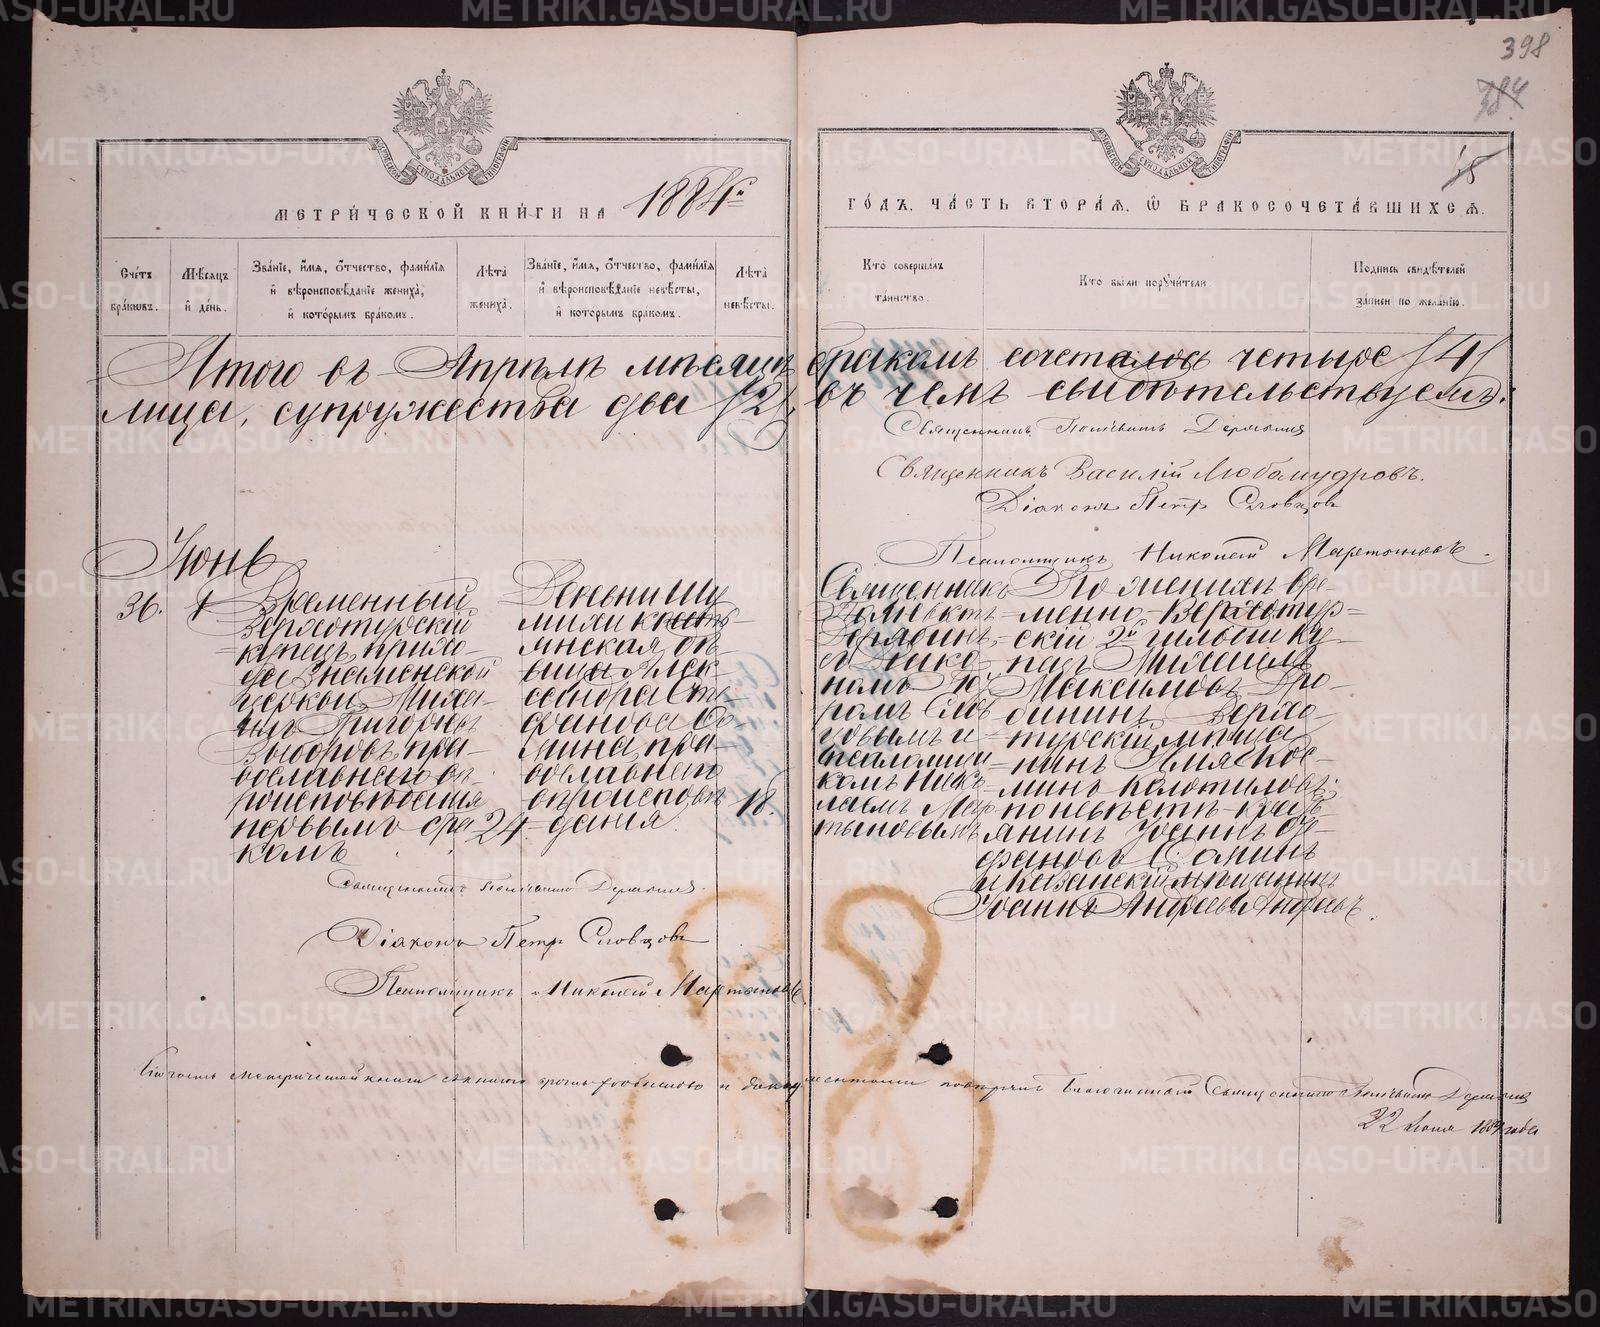 398
384
15
МЕТРИ́ЧЕСКОЙ КНИ́ГИ НА 1884й
ГО́ДЪ, ЧА́СТЬ ВТОРА́Я, Ѡ БРАКОСОЧЕТА́ВШИХСЯ.
Сче́тъ бра́ковъ.
Мѣ́сяцъ и҆ де́нь.
Зва́нїе, и҆́мя, ѻ҆́тчество, фами́лїя и҆ вѣроисповѣ́данїе жениха̀, и҆ кото́рымъ бра́комъ.
Лѣ́та жениха̀.
Зва́нїе, и҆́мя, ѻ҆́тчество, фами́лїя и҆ вѣроисповѣ́данїе невѣ́сты, и҆ кото́рымъ бра́комъ.
Лѣ́та невѣ́сты.
Кто̀ соверша́лъ та́инство.
Кто̀ бы́ли порꙋчи́тели.
По́дпись свидѣ́телей за́писи по жела́нїю.
Итого въ Апрѣлѣ мѣсяцѣ бракомъ сочеталось четыре /4/
лица, супружества два /2/, въ чемъ свидѣтельствуемъ:
Священникъ Дерябинъ
Священникъ Василій Любомудровъ.
Діаконъ Петръ Словцовъ
Псаломщикъ Николай Мартыновъ.
Іюнь
36.
Временный
Верхотурскій
купецъ, прихо-
да Знаменской
церкви, Миха-
илъ Григорьевъ
Выборовъ, пра-
вославнаго вѣ-
роисповѣданія
первымъ бра-
комъ
24
крестья-
янская дѣ-
вица Алек-
сандра Сте-
фанова Со-
мина, пра-
вославнаго
вѣроисповѣ-
данія.
18.
Священникъ
съ Діако-
номъ Пет-
ромъ Слов-
цовымъ и
псаломщи-
комъ Нико-
лаемъ Мар-
тыновымъ
По женихѣ вре-
менно-Верхотур-
скій 2й гильдіи ку-
пецъ Михаилъ
Максимовъ Дро-
бининъ, Верхо-
турскій мѣща-
нинъ
по невѣстѣ: крестъ-
янинъ Іоаннъ
Соминъ
и Казанскій мѣщанинъ
Іоаннъ Андреевъ Андреевъ.
Священникъ Дерябинъ.
Діаконъ Петръ Словцовъ
Псаломщикъ Николай Мартыновъ
метрической книги
22 Іюня 1884 года
METRIKI.GASO-URAL.RU